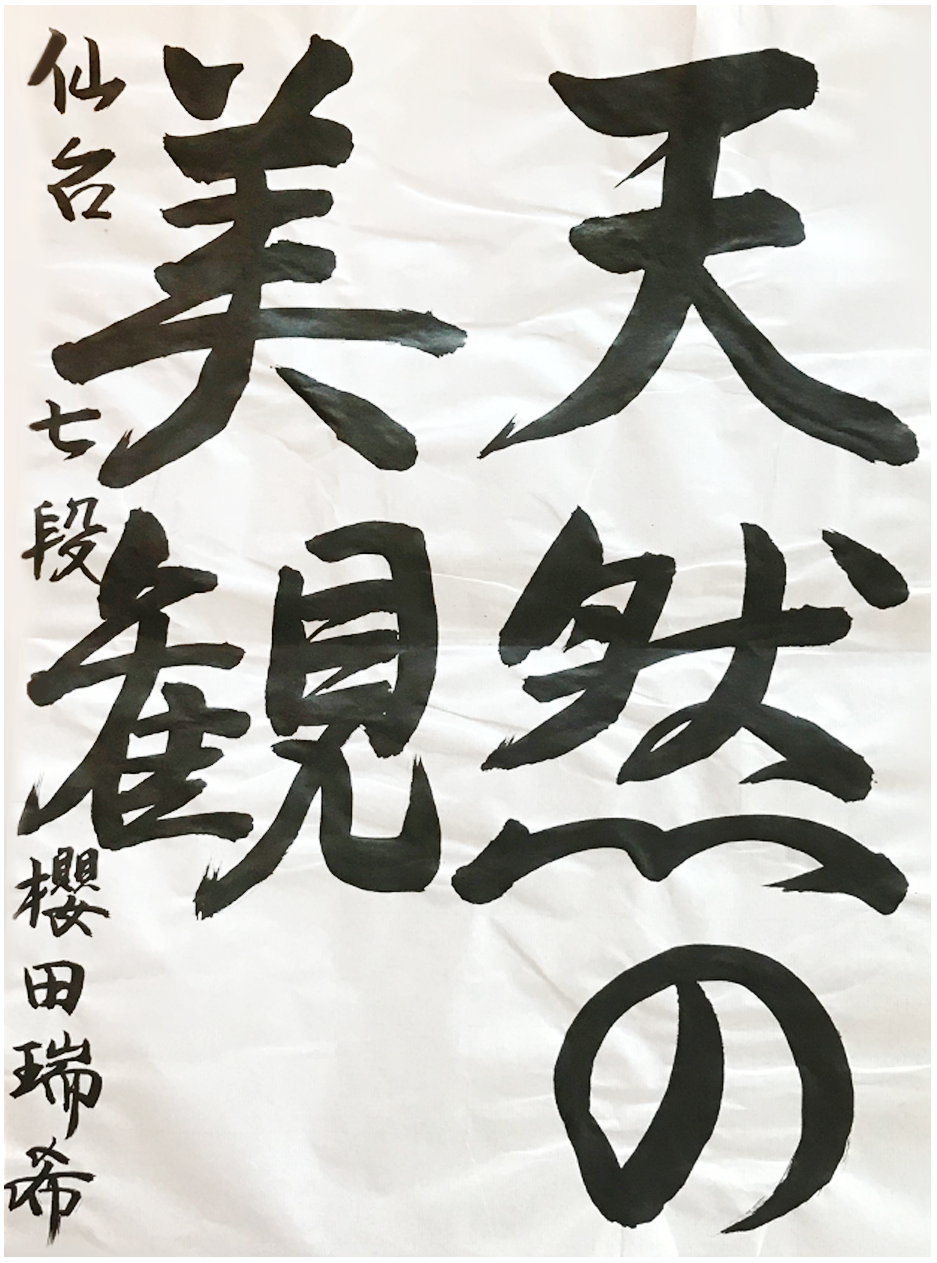 天然の
美観
仙台 七段 櫻田瑞希